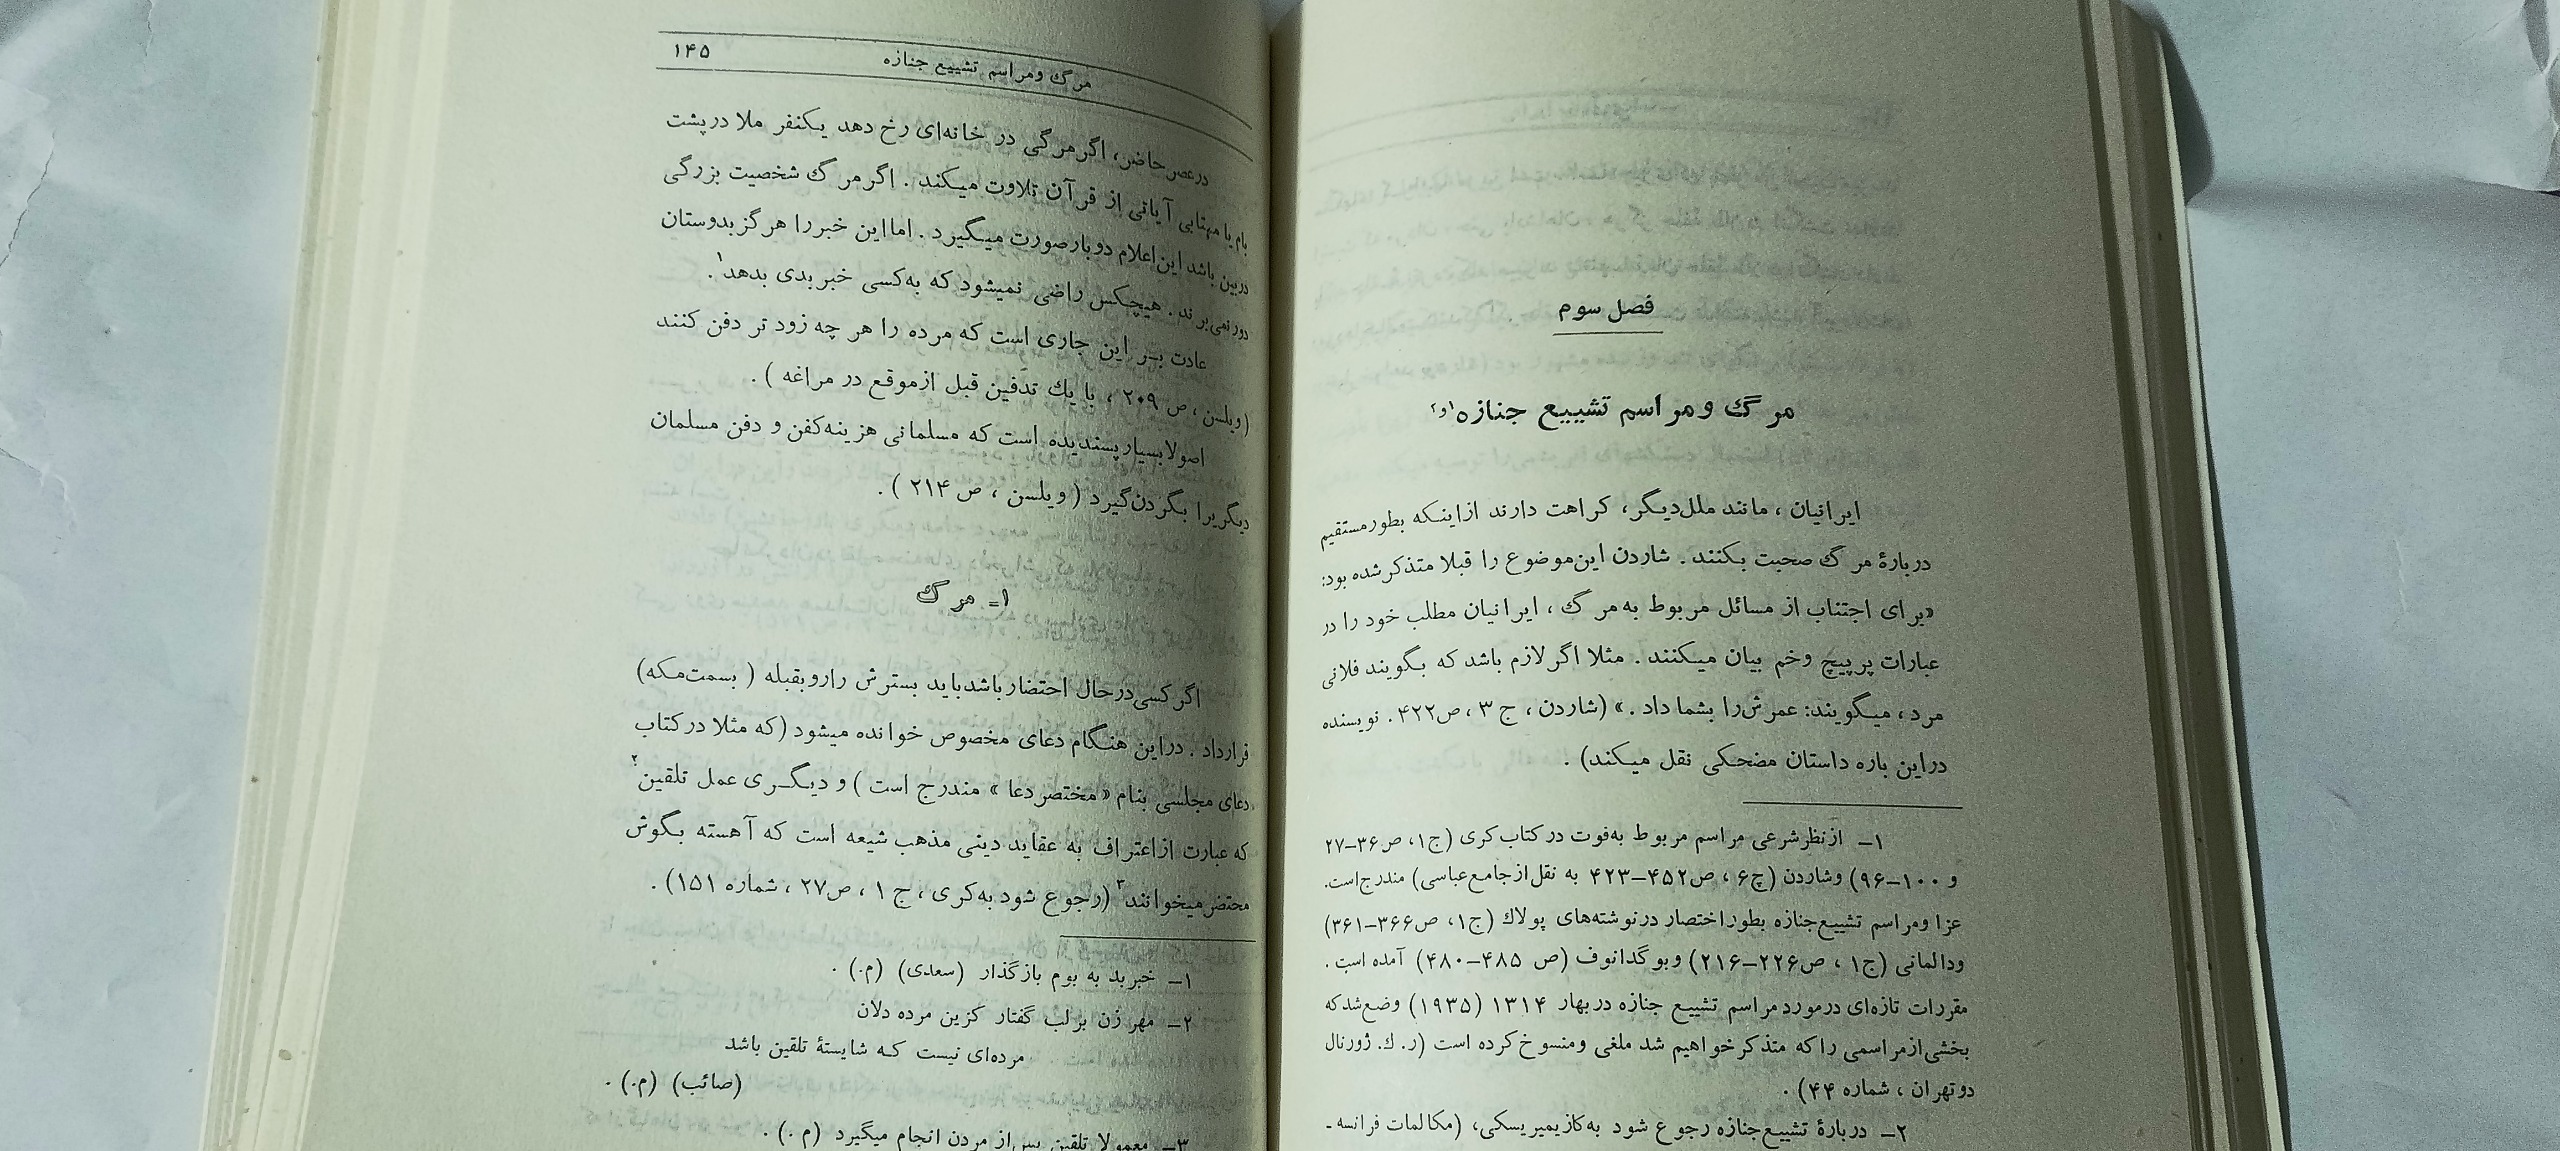 فصل سوم
مرگ ومراسم تشییع جنازه ۱و۲
ایرانیان ، مانند ملل‌دیگر، کراهت دارند ازاینکه بطورمستقیم
دربارهٔ مرگ صحبت بکنند . شاردن این‌موضوع را قبلا متذکرشده بود:
«برای اجتناب از مسائل مربوط به‌مرگ ، ایرانیان مطلب خود را در
عبارات پرپیچ وخم بیان میکنند . مثلا اگرلازم باشد که بگویند فلانی
مرد ، میگویند: عمرش‌را بشما داد .» (شاردن ، ج ۳ ، ص۴۲۲ . نویسنده
دراین باره داستان مضحکی نقل میکند) .
۱– ازنظرشرعی مراسم مربوط به‌فوت درکتاب‌کری (ج۱، ص۳۶–۲۷
و ۱۰۰–۹۶) وشاردن (ج۶ ، ص۴۵۲–۴۲۳ به نقل‌ازجامع‌عباسی) مندرج‌است.
عزا ومراسم تشییع‌جنازه بطوراختصار درنوشته‌های پولاك (ج۱، ص۳۶۶–۳۶۱)
ودالمانی (ج۱ ، ص۲۲۶–۲۱۶) وبوگدانوف (ص ۴۸۵–۴۸۰) آمده است .
مقررات تازه‌ای درمورد مراسم تشییع جنازه دربهار ۱۳۱۴ (۱۹۳۵) وضع‌شدکه
بخشی‌ازمراسمی راکه متذکرخواهیم شد ملغی ومنسوخ کرده است (ر. ك. ژورنال
دوتهران ، شماره ۴۴) .
۲– دربارهٔ تشییع‌جنازه رجوع شود به‌کازیمیریسکی، (مکالمات فرانسه-
مرگ ومراسم تشییع جنازه ۱۴۵
درعصرحاضر، اگرمرگی در خانه‌ای رخ دهد یکنفر ملا درپشت
بام یا مهتابی آیاتی از قرآن تلاوت میکند . اگرمرگ شخصیت بزرگی
دربین باشد این‌اعلام دوبارصورت میگیرد . امااین خبررا هرگزبدوستان
دور نمی‌برند . هیچکس راضی نمیشود که به‌کسی خبربدی بدهد۱.
عادت بر این جاری است که مرده را هر چه زود تر دفن کنند
(ویلسن ، ص ۲۰۹ ، با یك تدفین قبل ازموقع در مراغه ) .
اصولابسیارپسندیده است که مسلمانی هزینه‌کفن و دفن مسلمان
دیگریرا بگردن‌گیرد ( ویلسن ، ص ۲۱۴ ) .
۱– مرگ
اگرکسی‌درحال احتضارباشدباید بسترش راروبقبله ( بسمت‌مکه)
قرارداد . دراین هنگام دعای مخصوص خوانده میشود (که مثلا درکتاب
دعای مجلسی بنام «مختصردعا » مندرج است ) و دیگـری عمل تلقین۲
که عبارت ازاعتراف به عقاید دینی مذهب شیعه است که آهسته بگوش
محتضرمیخوانند۳ (رجوع شود به‌کری ، ج ۱ ، ص۲۷ ، شماره ۱۵۱) .
۱– خبربد به بوم بازگذار (سعدی) (م.) .
۲– مهر زن برلب گفتار کزین مرده دلان
مرده‌ای نیست کـه شایستهٔ تلقین باشد
(صائب) (م.) .
۳– معمولا تلقین پس‌از مردن انجام میگیرد (م .) .